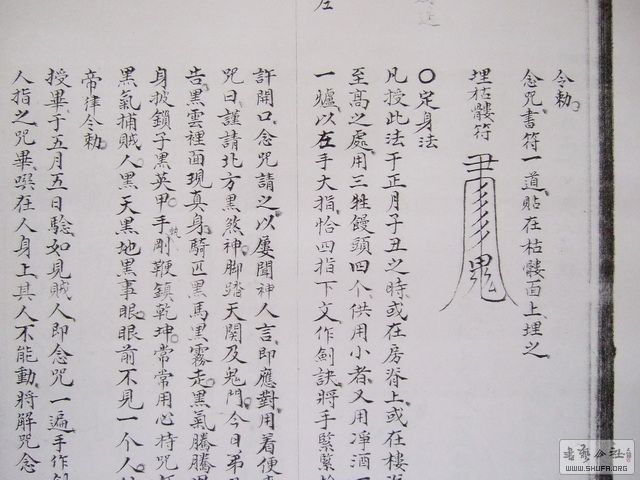 令勅
念咒書符一道貼在枯髏面上埋之
埋枯髏符
鬼
〇定身法
凡授此法于正月子丑之時或在房脊上或在樓
至高之處用三牲饅頭四个供用小者又用渾酒一
一爐以在手大指恰四指下文作劍訣將手緊
左
許開口念咒請之以屢聞神人言即應對用着便
咒曰謹請北方黑煞神脚踏天關及鬼門今日弟
告黑雲裡面現真身騎匹黑馬黑霧走黑氣騰騰
身披鎖子黑英甲手執剛鞭鎮乾坤常常用心持咒
黑氣捕賊人黑天黑地黑事眼眼前不見一个人
帝律令勅
授畢于五月五日驗如見賊人即念咒一遍手作
人指之咒畢噀在人身上其人不能動將解咒念
書藝公社
WWW.SHUFA.ORG